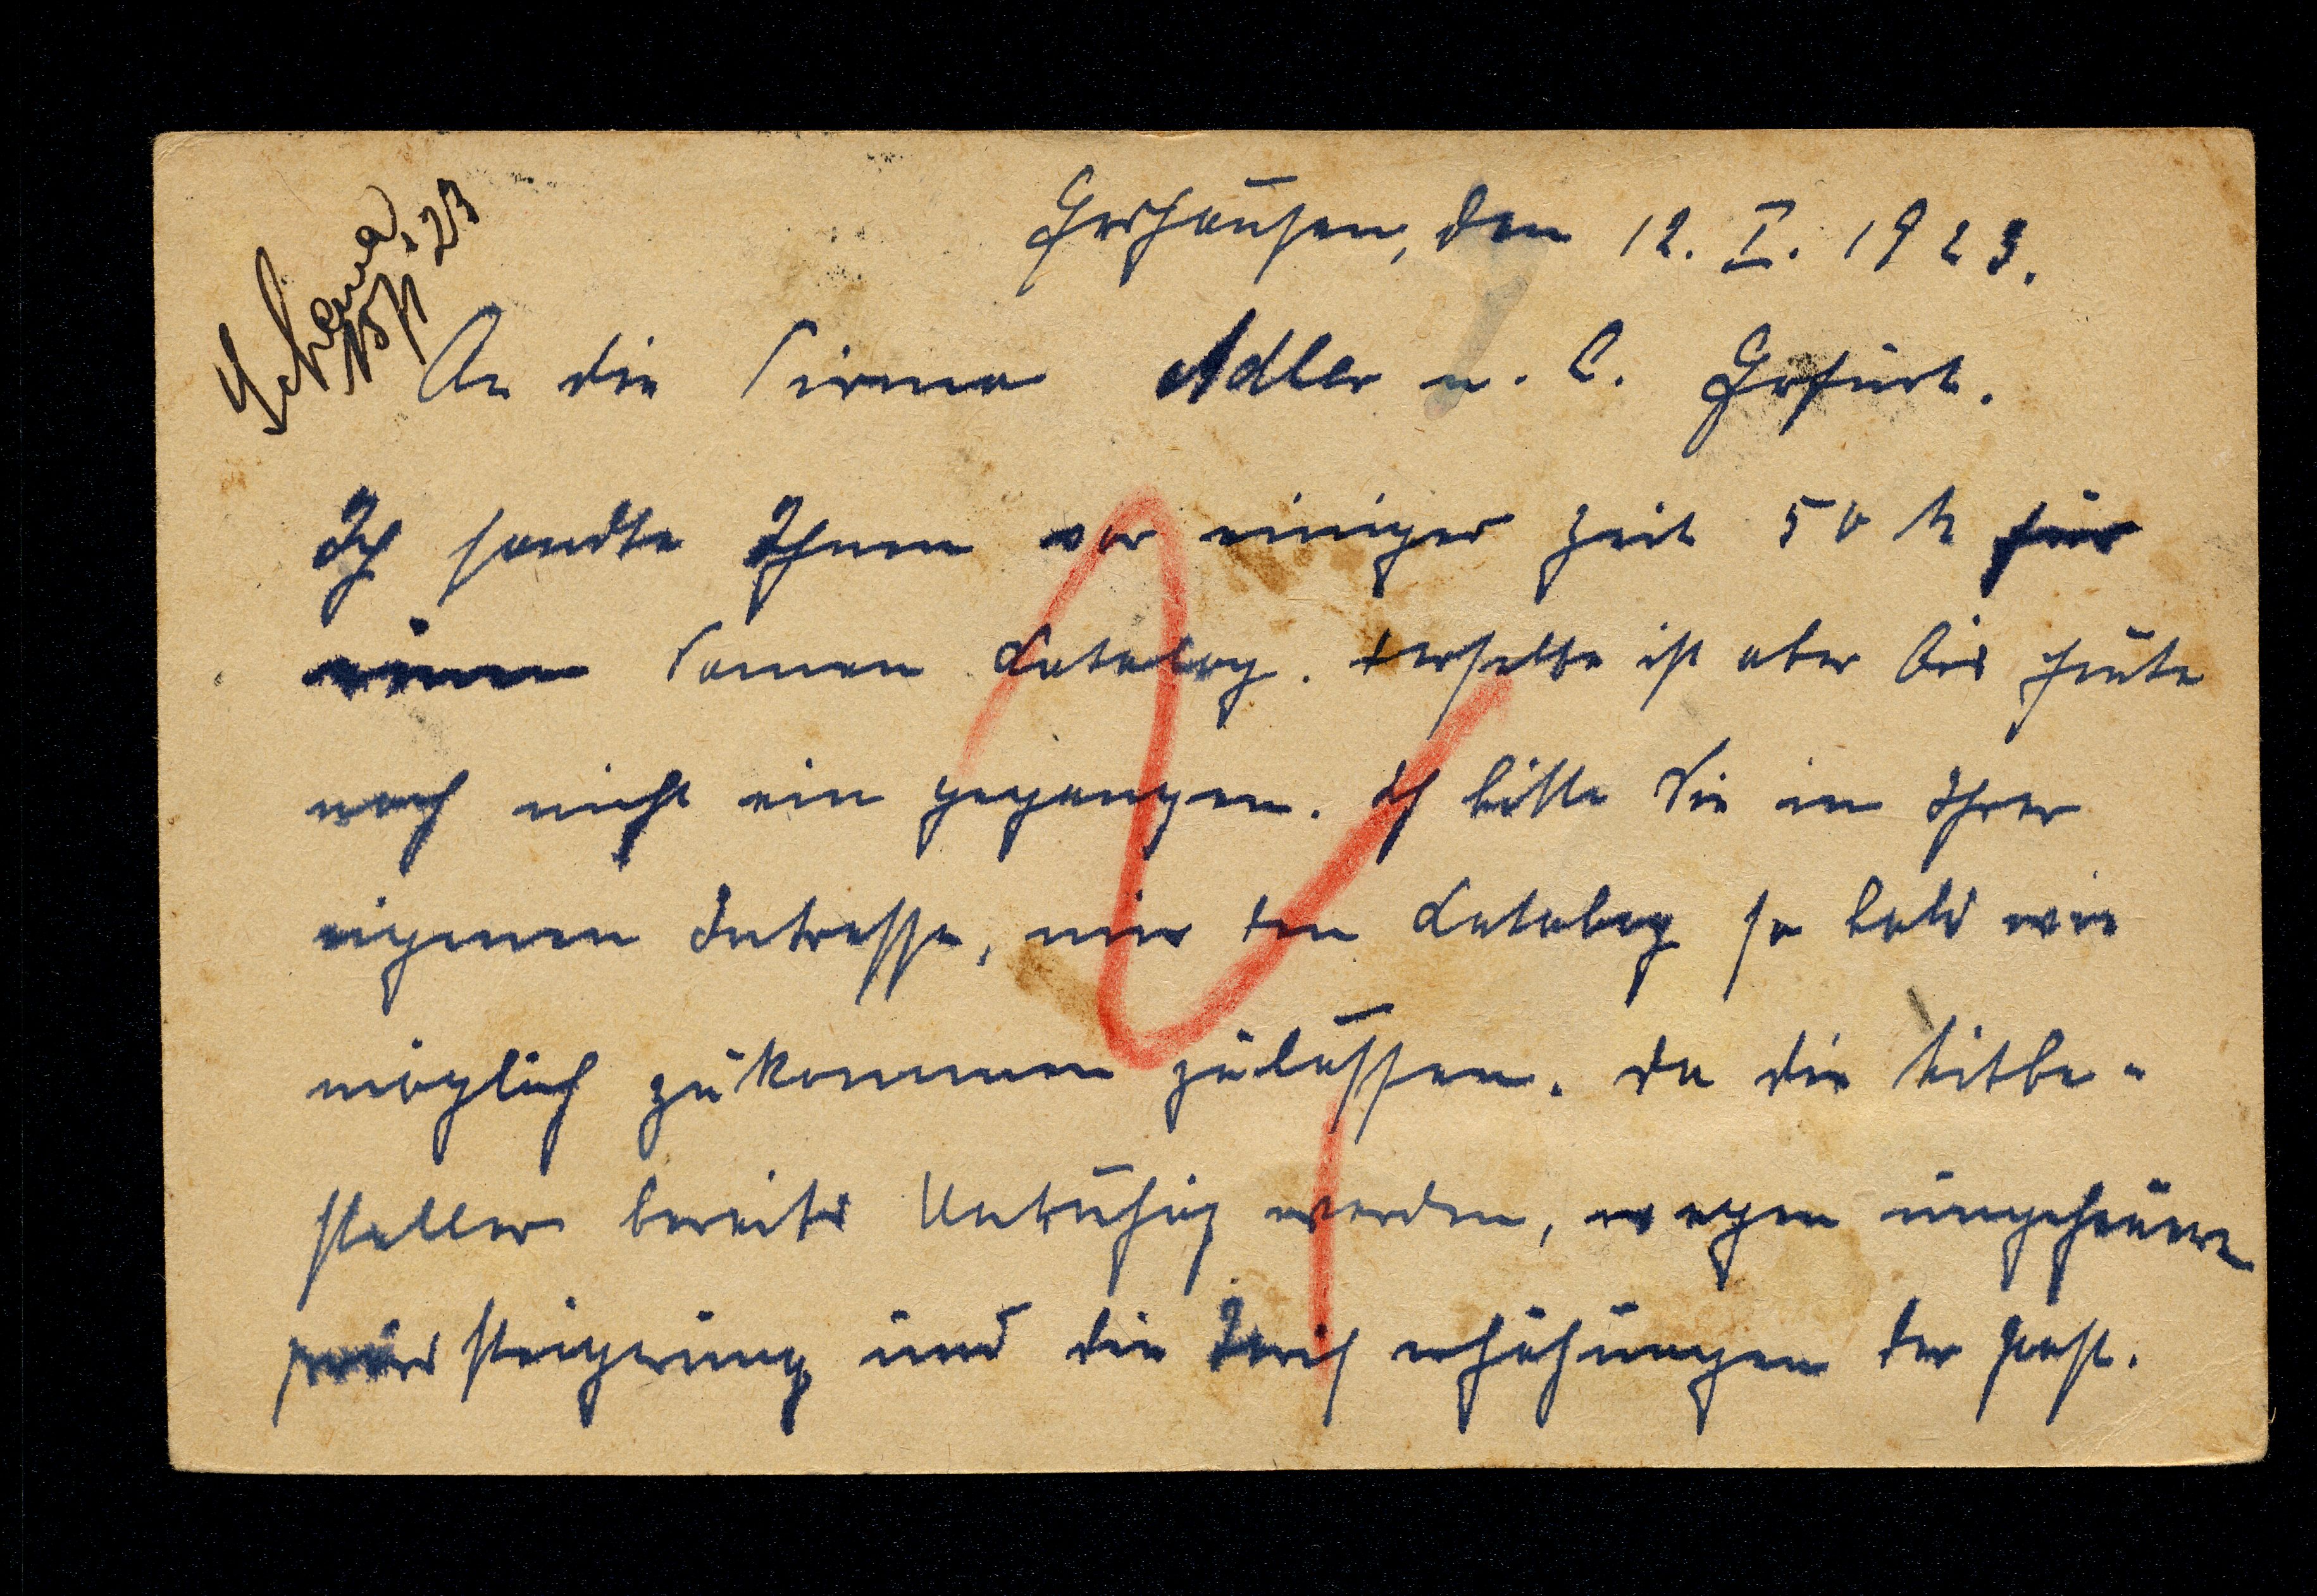 Schema
15/1.23
Gershausen, den 12. I. 1923.
An die Firma Adler u. C. Erfurt.
Ich sandte Ihnen vor einiger Zeit 50 M für
einen Samen Katalog. Derselbe ist aber bis heute
noch nicht ein gegangen. Ich bitte Sie in Ihrer
eigenen Intresse, mir den Katalog so bald wie
möglich zukommen zulassen. Da die Mitbe-
steller bereits Unruhig werden, wegen ungeheure
preis steigerung und die Tarif erhöhungen der Post.